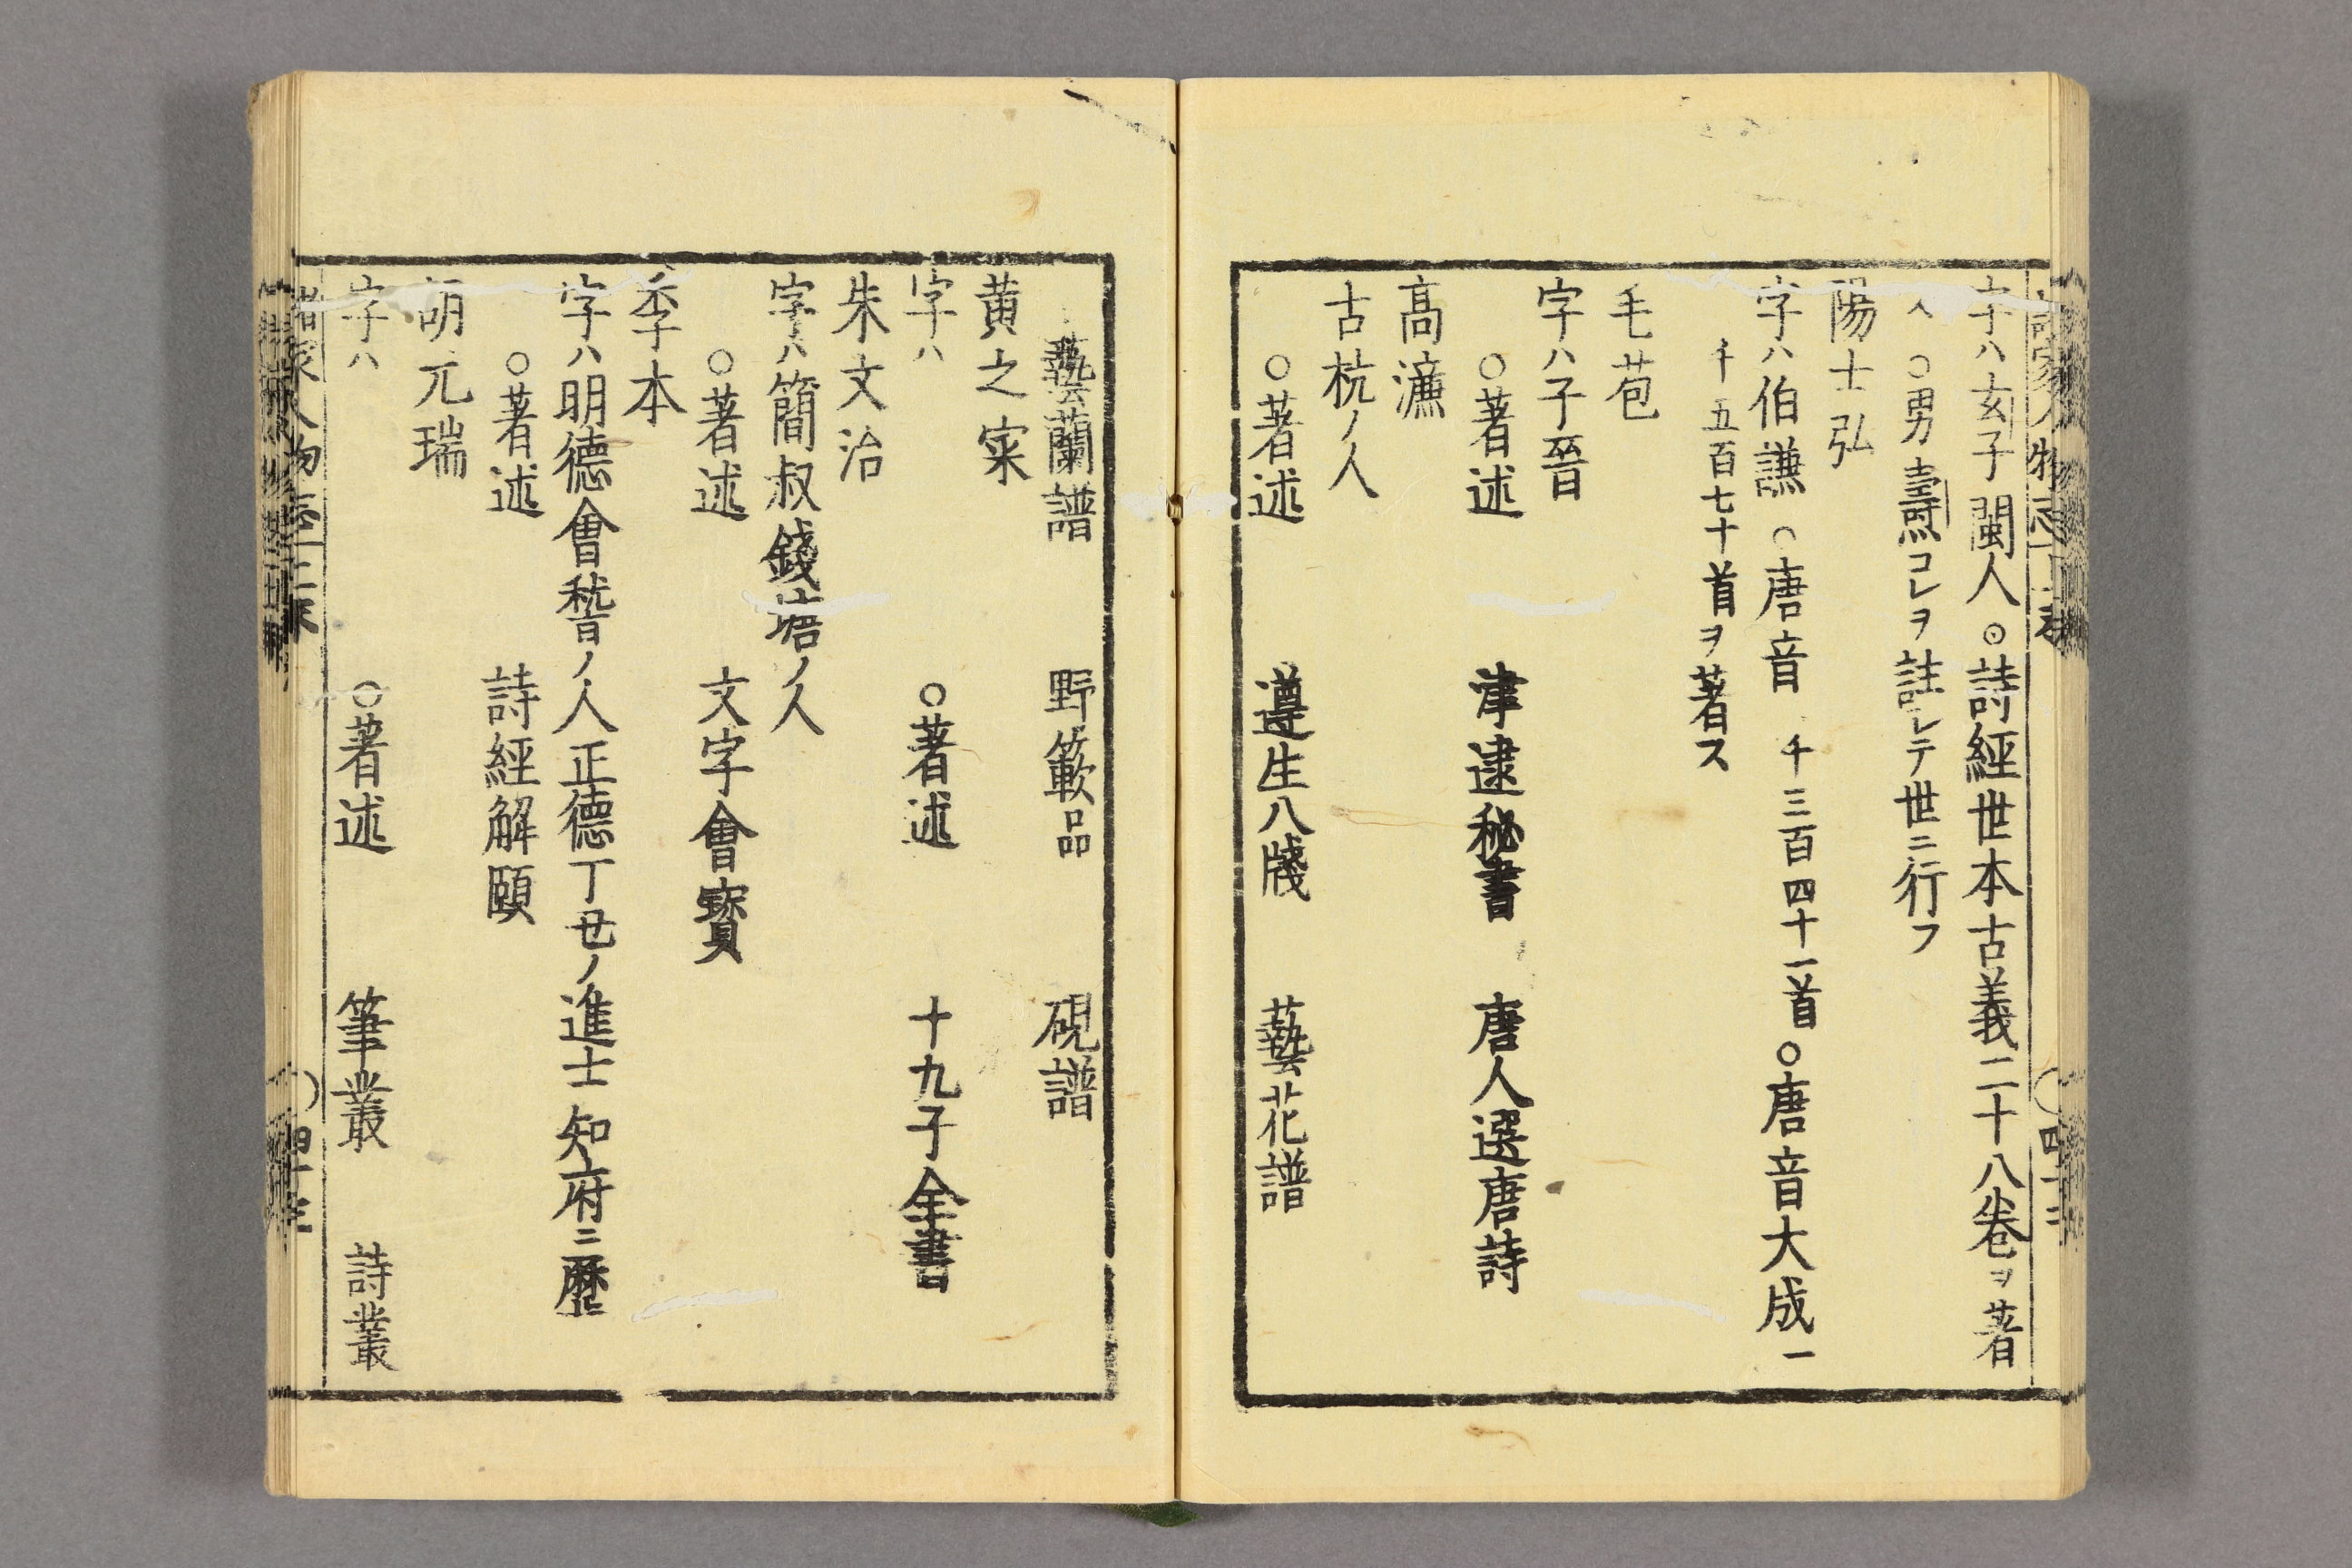 字ハ玄子閩人○詩經世本古義二十八卷ヲ著
ス ○男燾コレヲ註シテ世ニ行フ
陽士弘
字ハ伯謙 ○唐音 千三百四十一首○唐音大成一
千五百七十首ヲ著ス
毛苞
字ハ子晉
○著述 津逮秘書 唐人選唐詩
高濂
古杭ノ人
○著述 遵生八牋 藝花譜
藝蘭譜 野蔌品 硯譜
黄之寀
字ハ ○著述 十九子全書
朱文治
字ハ簡叔錢塘ノ人
○著述 文字會寳
季本
字ハ明德會稽ノ人正德丁丑ノ進士知府ニ歷
○著述 詩經解頤
胡元瑞
字ハ ○著述 筆叢 詩叢